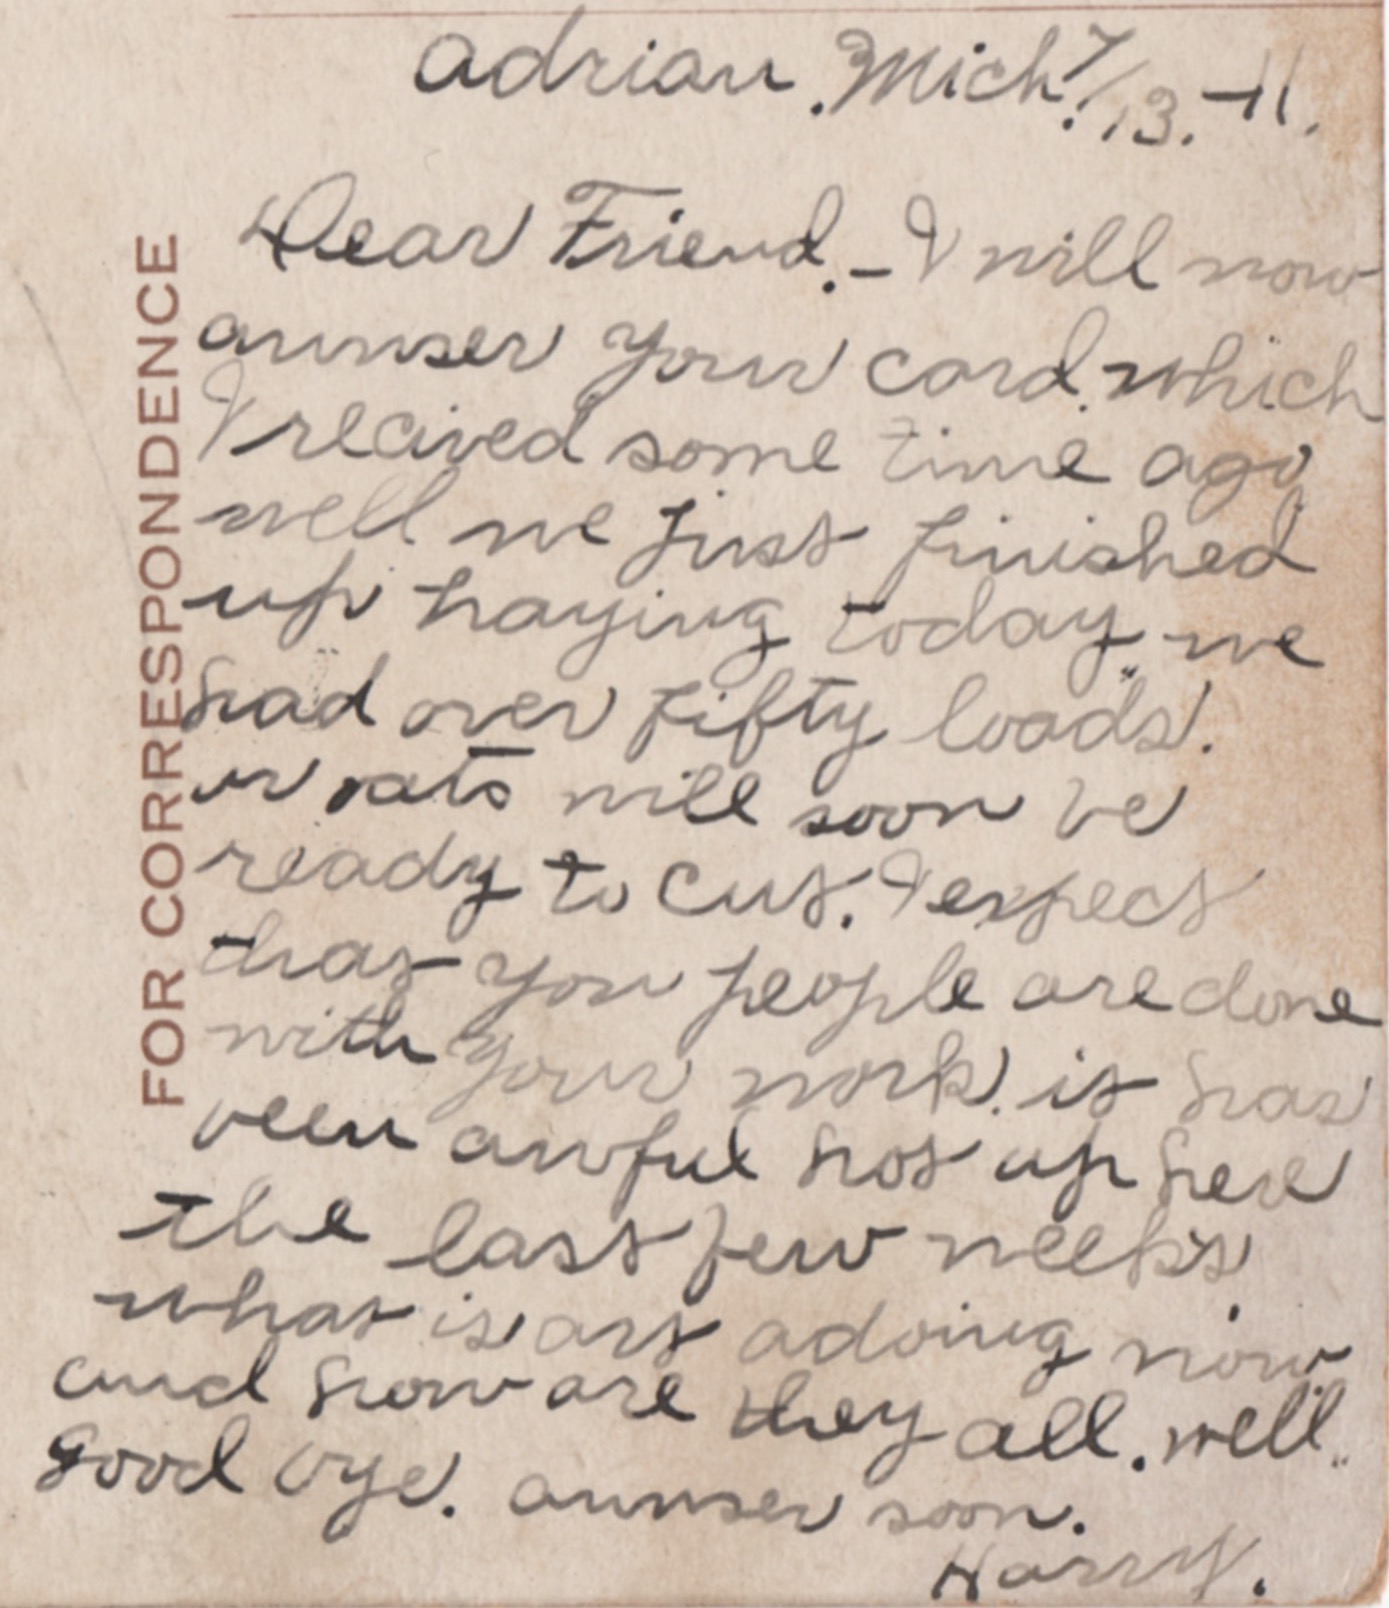 Adrian. Mich. 7/13.-11.
Dear Friend.- I will now
aunser your card. which
I recived some time ago
well we just finished
up haying today. we
had over fifty loads.
ur oats will soon be
ready to cut. I expect
that you people are done
with your work. it has
been awful hot up here
the last few weeks
what is art adoing now
and how are they all. well..
good bye. aunser soon.
Harry.
FOR CORRESPONDENCE